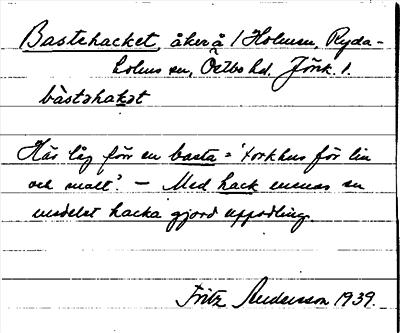 Bastehacket, åker å /Holmen, Ryda-
holms sn, Östbo hd. Jönk. l.
bàstəhakət
Här låg förr en basta = 'torkhus för lin
och malt'. — Med hack menas en
medelst hacka gjord uppodling.
Fritz Andersson 1939.